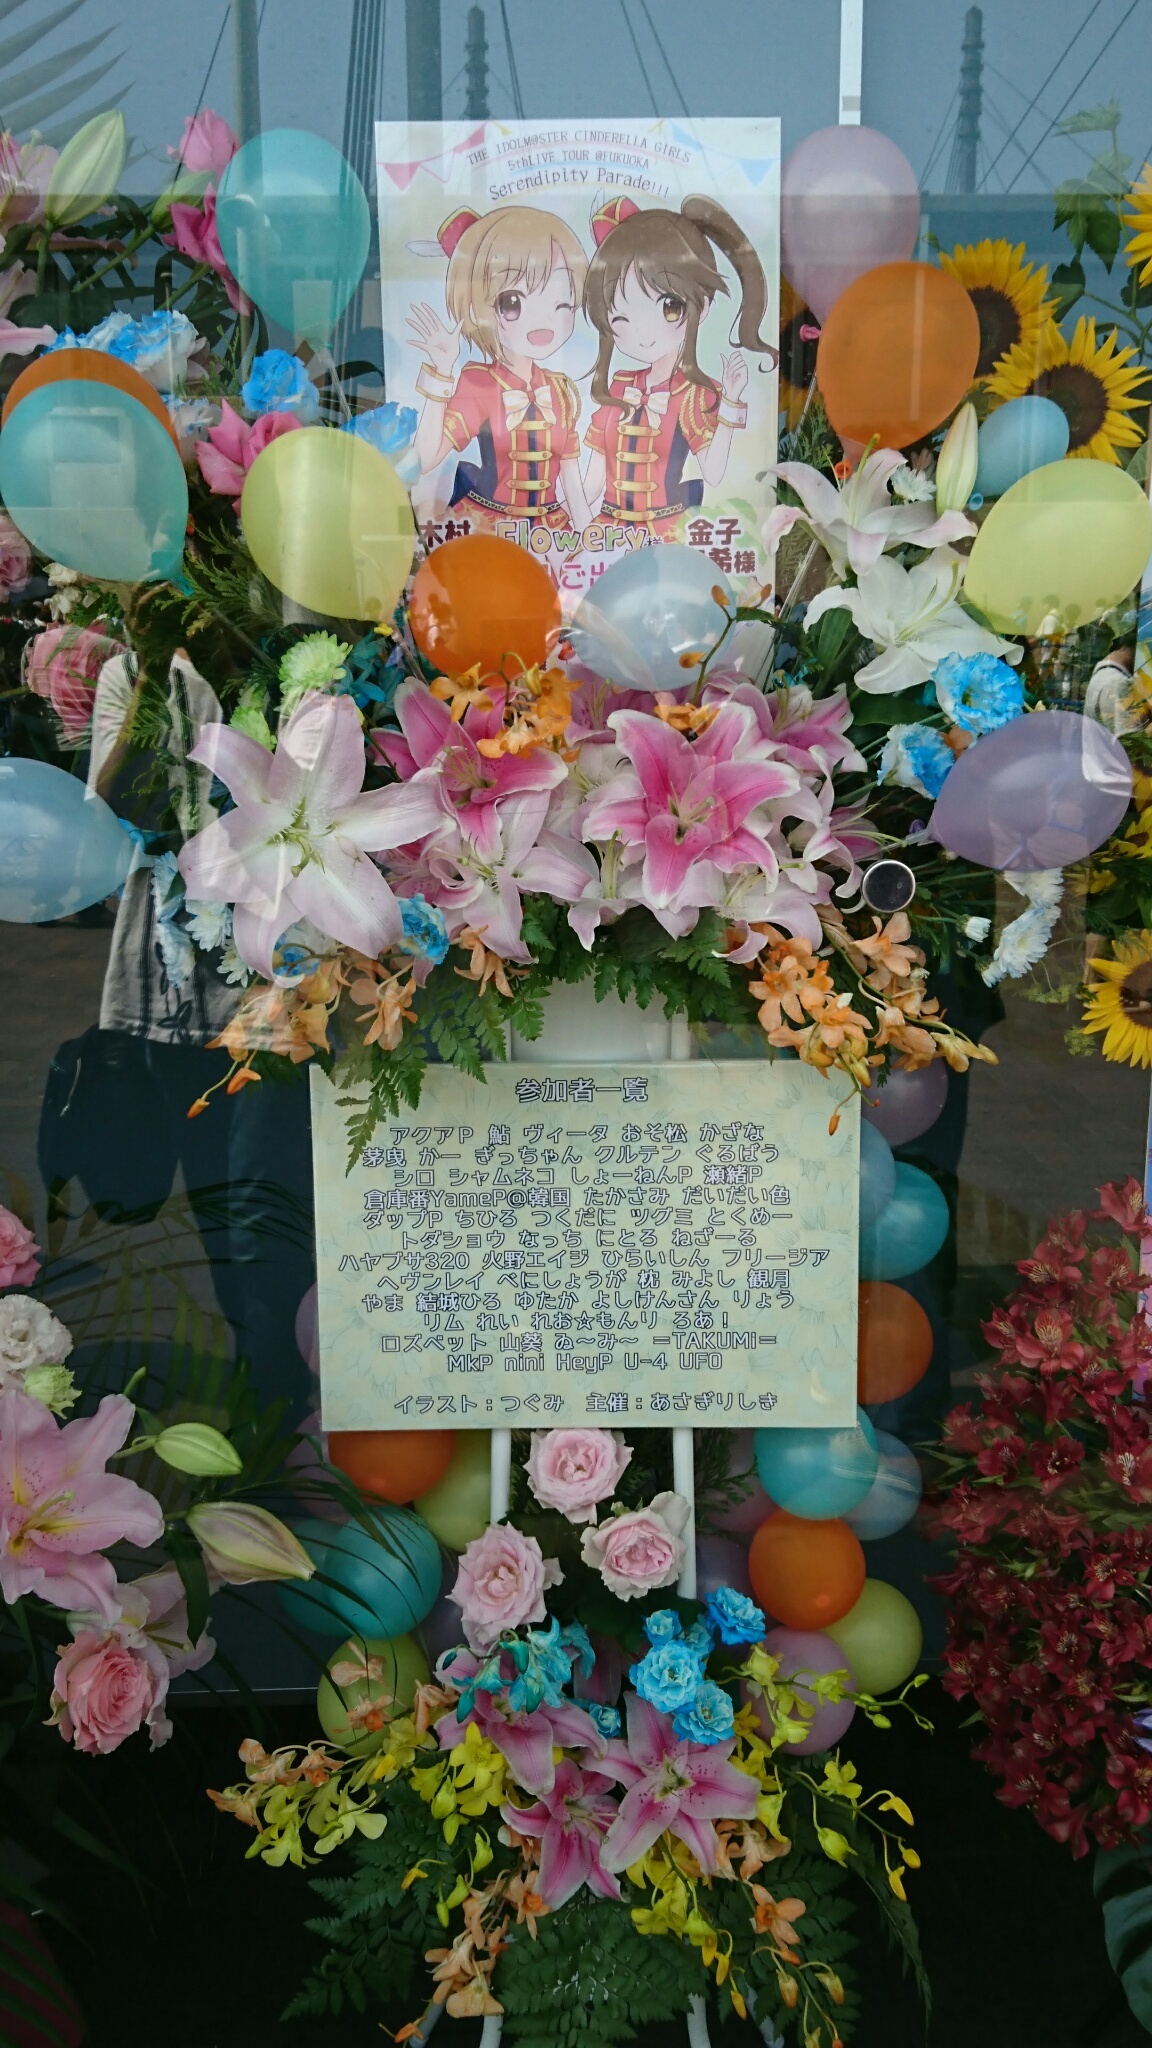 THE IDOLM@STER CINDERELLA GIRLS
5thLIVE TOUR @FUKUOKA
Serendipity Parade!!!
木村
Flowery様
金子
希様
ご出
参加者一覧
アクアP 鮎 ヴィータ おそ松 かざな
茅曳 かー ぎっちゃん クルテン ぐるばう
シロ シャムネコ しょーねんP 瀬緒P
倉庫番YameP@韓国 たかさみ だいだい色
ダップP ちひろ つくだに ツグミ とくめー
トダショウ なっち にとろ ねぎーる
ハヤブサ320 火野エイジ ひらいしん フリージア
ヘヴンレイ べにしょうが 枕 みよし 観月
やま 結城ひろ ゆたか よしけんさん りょう
リム れい れお☆もんり ろあ!
ロズベット 山葵 ゐ〜み〜 =TAKUMi=
MkP nini HeyP U-4 UFO
イラスト:つぐみ 主催:あさぎりしき